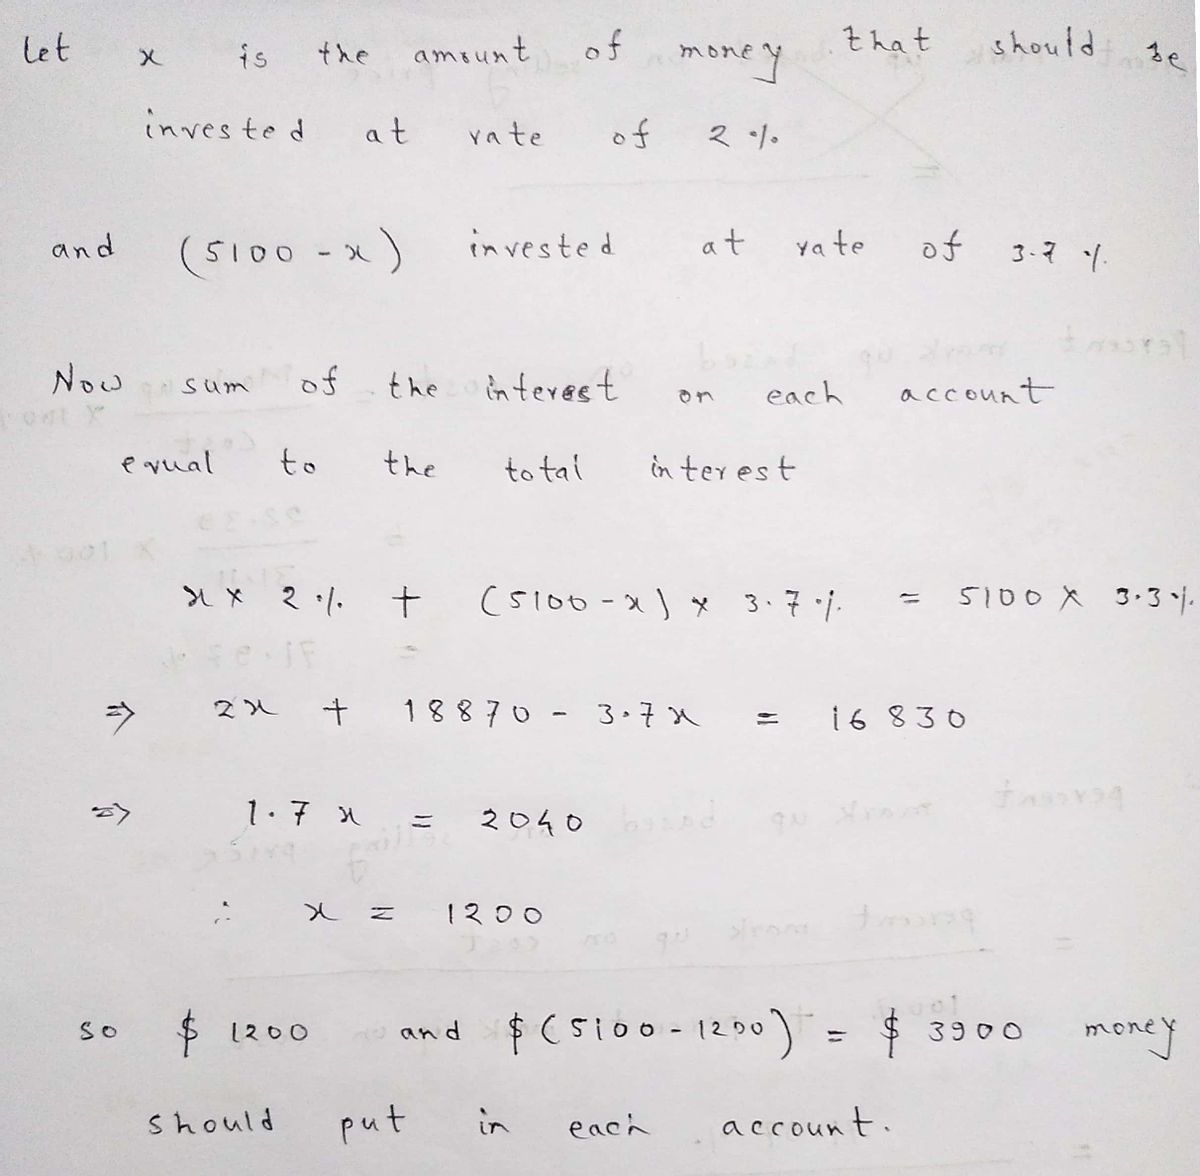 let x is the amount of money that should be
invested at rate of 2 %
and (5100 - x) invested at rate of 3.7 %
Now sum of the interest on each account
equal to the total interest
x × 2 % + (5100 - x) × 3.7 % = 5100 × 3.3 %
⇒ 2x + 18870 - 3.7x = 16830
⇒ 1.7 x = 2040
∴ x = 1200
so $ 1200 and $ (5100 - 1200) = $ 3900 money
should put in each account.